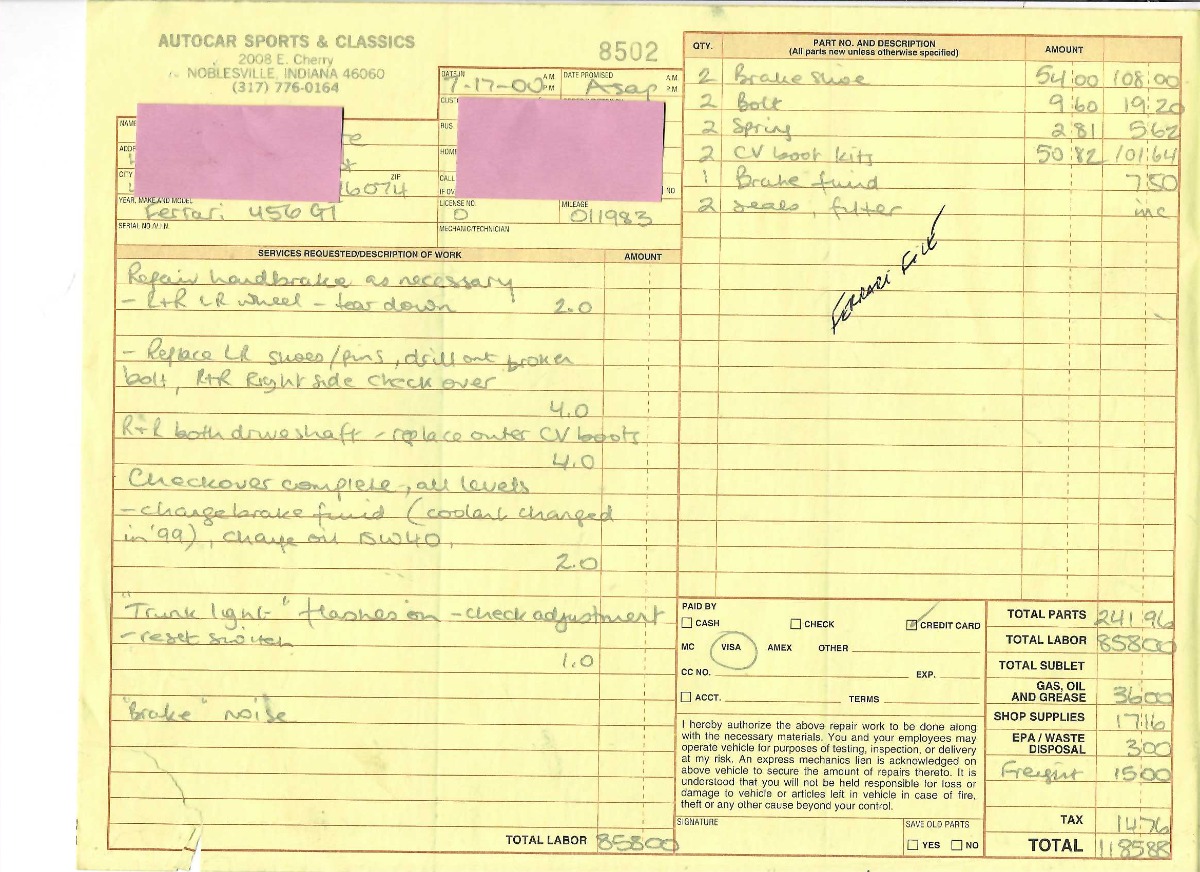 AUTOCAR SPORTS & CLASSICS
2008 E. Cherry
NOBLESVILLE, INDIANA 46060
(317) 776-0164
8502
DATE IN
7-17-00
A.M.
P.M.
DATE PROMISED
Asap
A.M.
P.M.
NAME
ADD
CITY
ZIP
46074
BUS.
CALL
NO
YEAR, MAKE AND MODEL
Ferrari 456 GT
LICENSE NO.
0
MILEAGE
011983
SERIAL NO./V.I.N.
MECHANIC/TECHNICIAN
SERVICES REQUESTED/DESCRIPTION OF WORK AMOUNT
Repair handbrake as necessary
- R+R LR wheel - tear down 2.0
- Replace LR shoes/pins, drill out broken
bolt, R+R Right side check over
4.0
R+R both driveshaft - replace outer CV boots
4.0
Checkover complete, all levels
- change brake fluid (coolant changed
in '99), change oil 15W40,
2.0
"Trunk light" flashes on - check adjustment
- reset switch
1.0
"Brake" noise
TOTAL LABOR 858 00
QTY. PART NO. AND DESCRIPTION AMOUNT
(All parts new unless otherwise specified)
2 Brake shoe 54 00 108 00
2 Bolt 9 60 19 20
2 Spring 2 81 5 62
2 CV boot kits 50 82 101 64
1 Brake fluid 7 50
2 seals, filter inc
FERRARI FILE
PAID BY
CASH CHECK CREDIT CARD
MC VISA AMEX OTHER
CC NO. EXP.
ACCT. TERMS
I hereby authorize the above repair work to be done along
with the necessary materials. You and your employees may
operate vehicle for purposes of testing, inspection, or delivery
at my risk. An express mechanics lien is acknowledged on
above vehicle to secure the amount of repairs thereto. It is
understood that you will not be held responsible for loss or
damage to vehicle or articles left in vehicle in case of fire,
theft or any other cause beyond your control.
SIGNATURE
SAVE OLD PARTS
YES NO
TOTAL PARTS 241 96
TOTAL LABOR 858 00
TOTAL SUBLET
GAS, OIL
AND GREASE 36 00
SHOP SUPPLIES 17 16
EPA / WASTE
DISPOSAL 3 00
Freight 15 00
TAX 14 76
TOTAL 1185 88